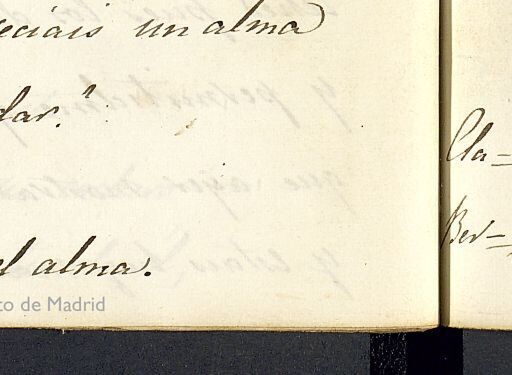 eciais un alma
dar?
el alma.
to de Madrid
Cla=
Ber=